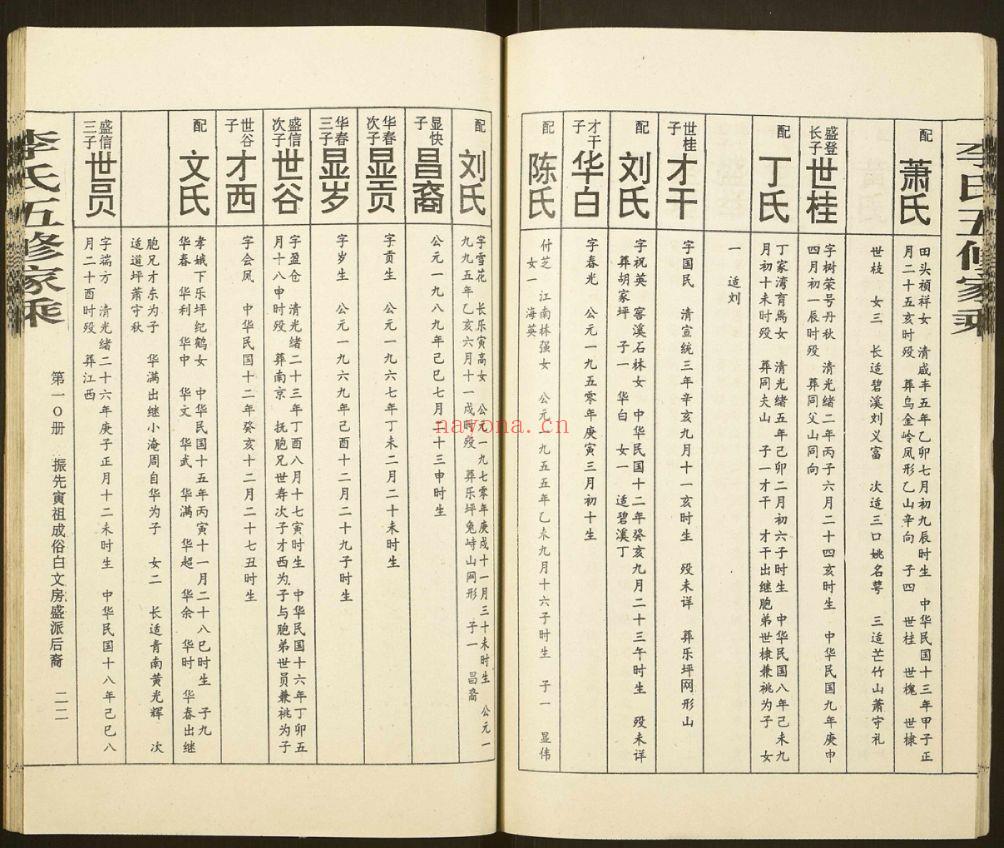 李氏五修家乘
配 萧氏
田头祯祥女 清咸丰五年乙卯七月初九辰时生 中华民国十三年甲子正
月二十五亥时殁 葬乌金岭凤形乙山辛向 子四 世桂 世槐 世棣
世枝 女三 长适碧溪刘义富 次适三口姚名萼 三适芒竹山萧守礼
盛登长子 世桂
字树荣号丹秋 清光绪二年丙子六月二十四亥时生 中华民国九年庚申
四月初一辰时殁 葬同父山同向
配 丁氏
丁家湾育禹女 清光绪五年己卯二月初六子时生 中华民国八年己未九
月初十未时殁 葬同夫山 子一才干 才干出继胞弟世棣兼祧为子 女
一 适刘
世桂子 才干
字国民 清宣统三年辛亥九月十一亥时生 殁未详 葬乐坪网形山
配 刘氏
字祝英 窑溪石林女 中华民国十二年癸亥九月二十三午时生 殁未详
葬胡家坪 子一 华白 女一 适碧溪丁
才干子 华白
字春光 公元一九五零年庚寅三月初十生
配 陈氏
付芝 江南林强女 公元一九五五年乙未九月十六子时生 子一 显伟
女一 海英
配 刘氏
字雪花 长乐寅高女 公元一九七零年庚戌十一月三十未时生 公元一
九九五年乙亥六月十一戌时殁 葬乐坪兔峙山网形 子一 昌裔
显快子 昌裔
公元一九八九年己巳七月二十三申时生
华春次子 显贡
字贡生 公元一九六七年丁未二月二十未时生
华春三子 显岁
字岁生 公元一九六九年己酉十二月二十九子时生
盛信次子 世谷
字盈仓 清光绪二十三年丁酉八月十七寅时生 中华民国十六年丁卯五
月十八申时殁 葬南京 抚胞兄世寿次子才西为子与胞弟世员兼祧为子
世谷子 才西
字会凤 中华民国十二年癸亥十二月二十七丑时生
配 文氏
孝城下乐坪纪鹤女 中华民国十五年丙寅十一月二十八巳时生 子九
华春 华利 华中 华文 华武 华满 华超 华余 华时 华春出继
胞兄才东为子 华满出继小淹周自华为子 女二 长适青南黄光辉 次
适道坪萧守秋
盛信三子 世员
字端方 清光绪二十六年庚子正月十二未时生 中华民国十八年己巳八
月二十酉时殁 葬江西
李氏五修家乘
第一〇册 振先寅祖成俗白文房盛派后裔 二二
nayona.cn